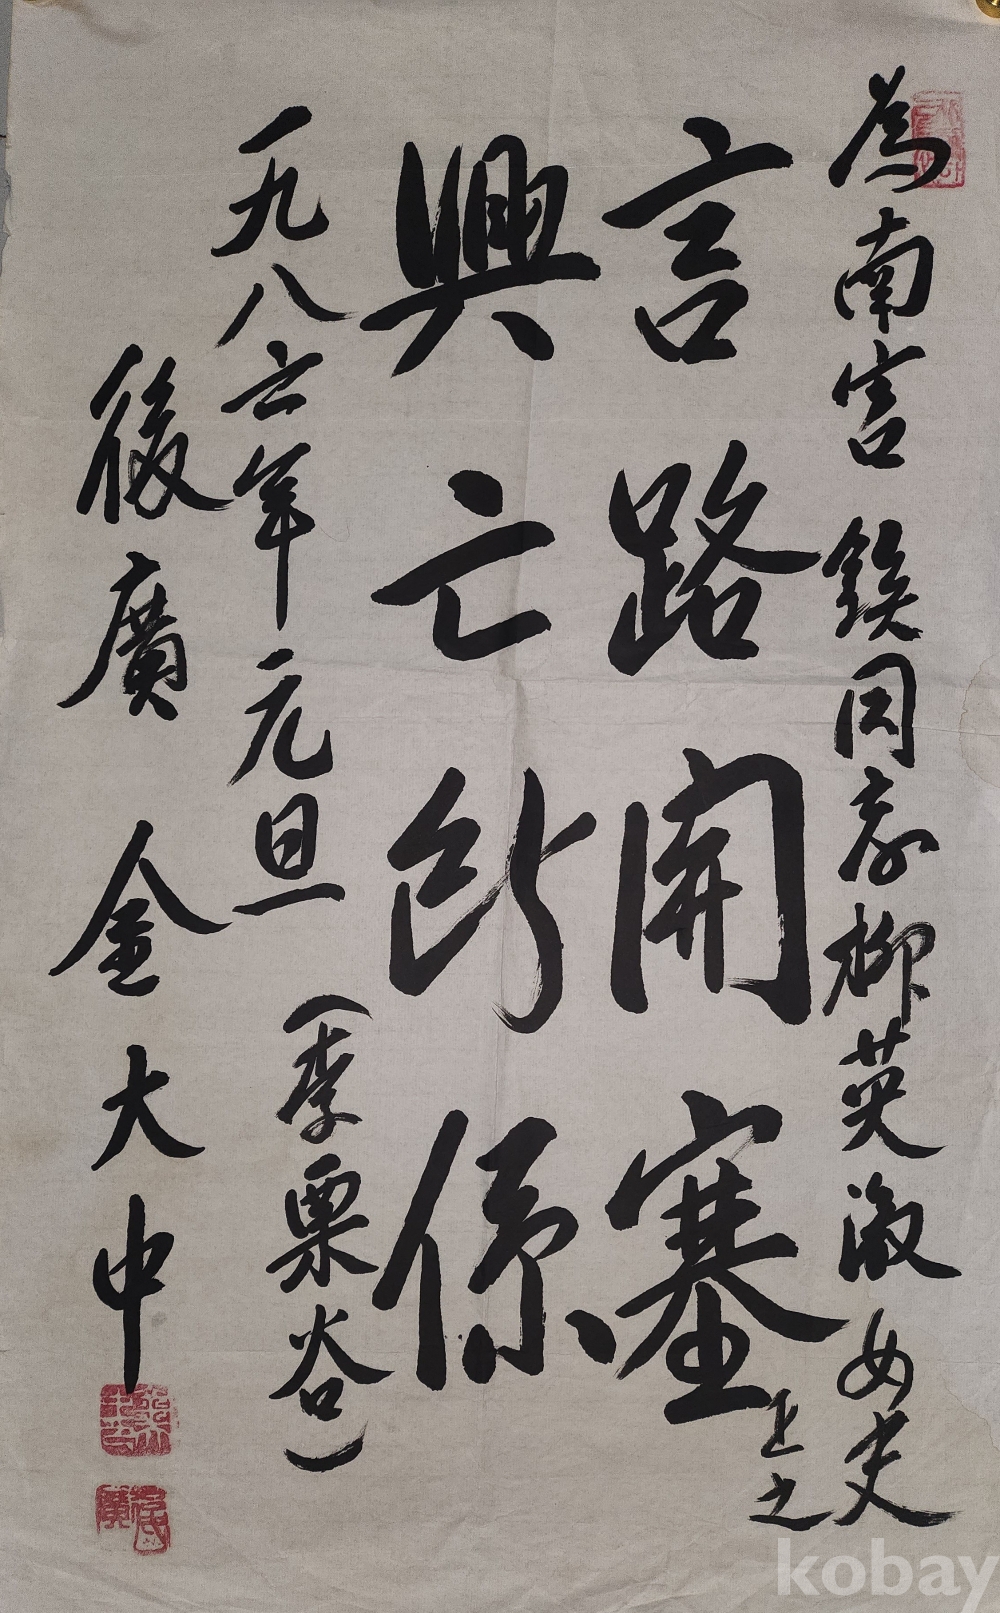 為南宮鈠同志柳英淑女史
正之
言路開塞
興亡所係
一九八六年元旦
(李栗谷)
後廣 金大中
後廣
kobay